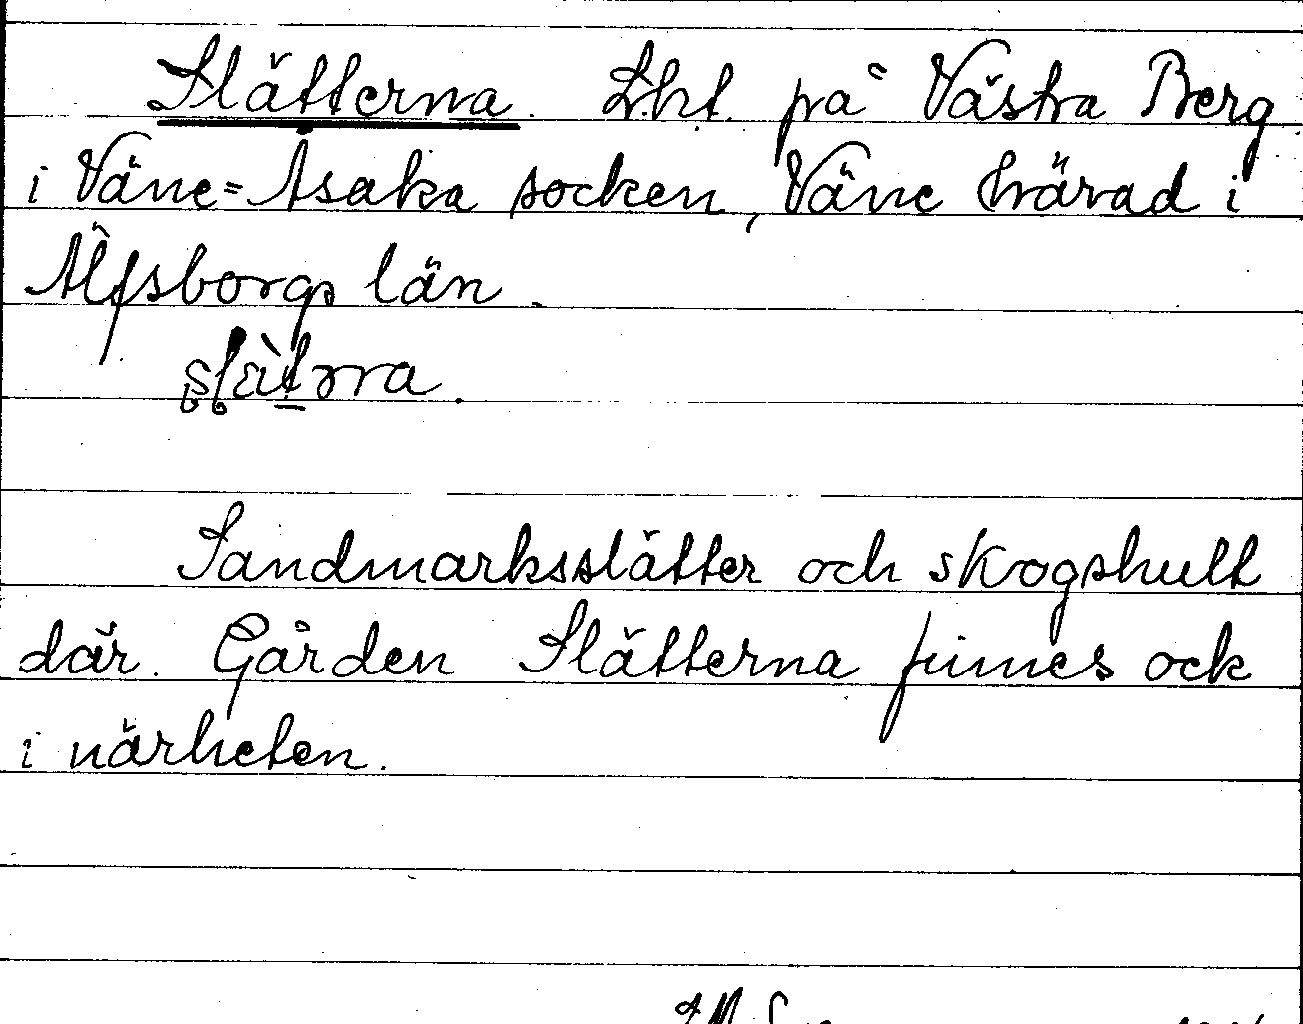 Slätterna. Lht. på Västra Berg
i Väne=Åsaka socken, Väne härad i
Älfsborgs län.
Sandmarksslätter och skogshult
där. Gården Slätterna finnes ock
i närheten.